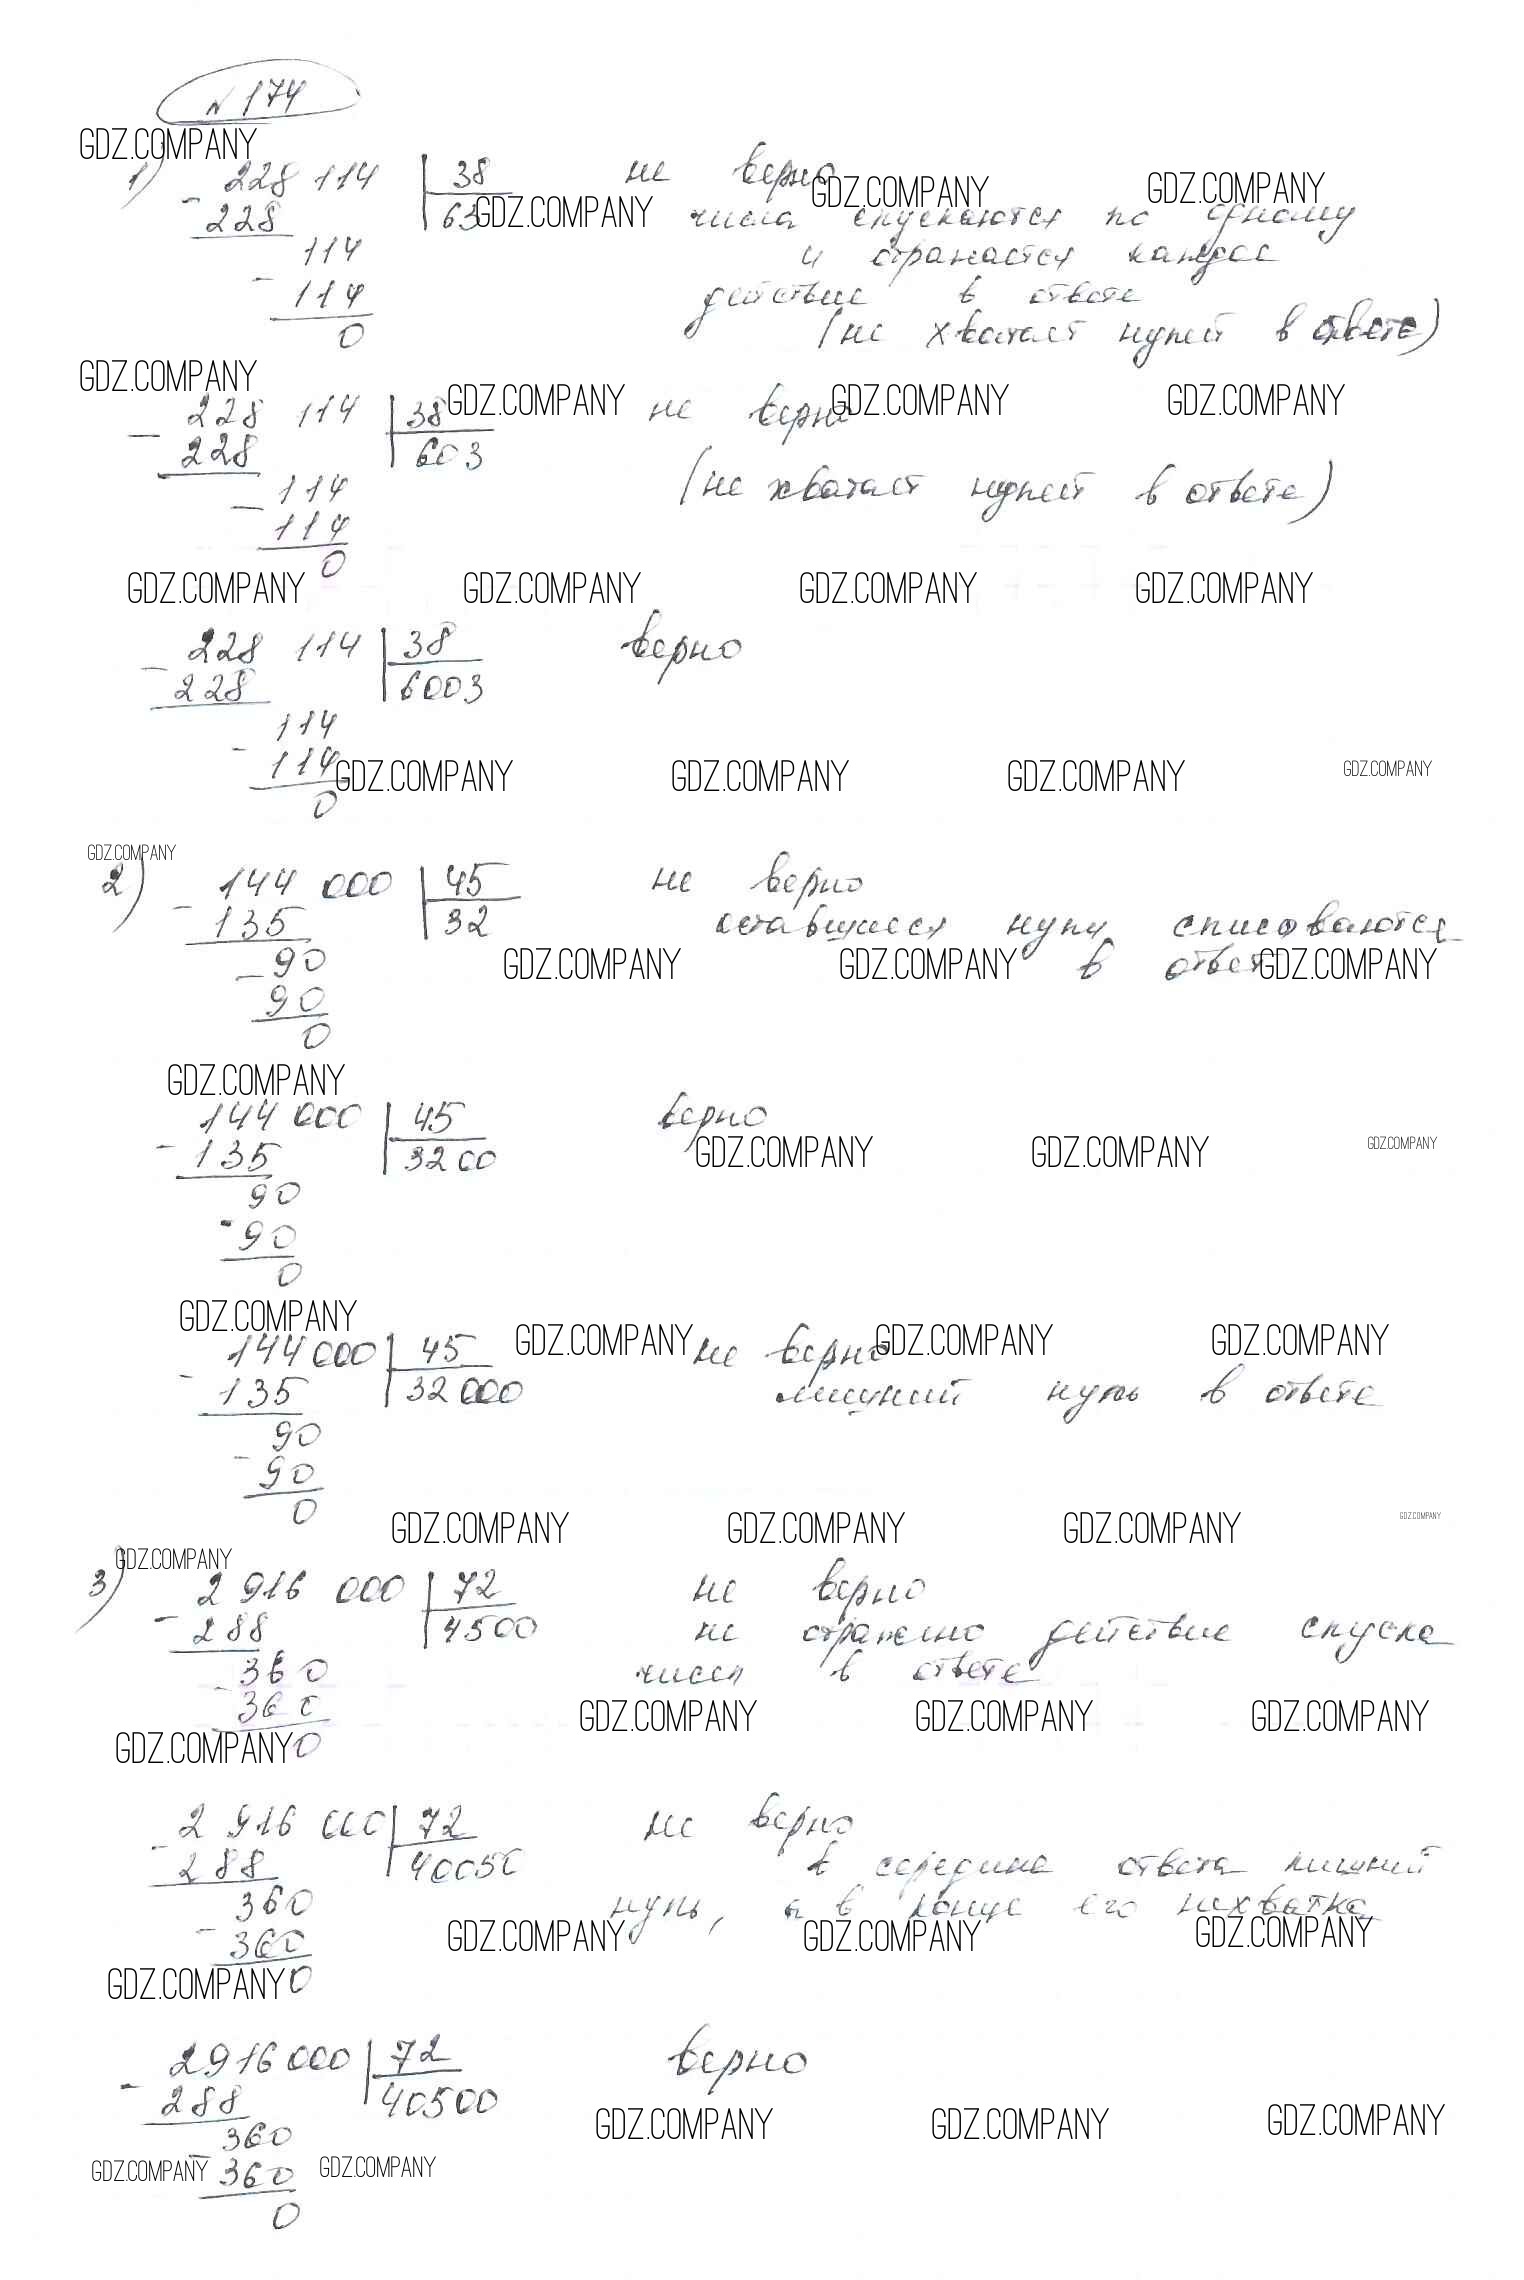 № 174
GDZ.COMPANY
1) - 228 114 | 38 не верно
GDZ.COMPANY GDZ.COMPANY
228 | 63 GDZ.COMPANY числа спускаются по одному
114 и отражается каждое
- 114 действие в ответе
0 (не хватает нулей в ответе)
GDZ.COMPANY GDZ.COMPANY GDZ.COMPANY GDZ.COMPANY
- 228 114 | 38 не верно
228 | 603
- 114 (не хватает нулей в ответе)
114
0
GDZ.COMPANY GDZ.COMPANY GDZ.COMPANY GDZ.COMPANY
- 228 114 | 38 верно
228 | 6003
- 114
114
GDZ.COMPANY GDZ.COMPANY GDZ.COMPANY GDZ.COMPANY
0
GDZ.COMPANY
2) - 144 000 | 45 не верно
135 | 32 оставшиеся нули списоваются
- 90 GDZ.COMPANY GDZ.COMPANY в ответ GDZ.COMPANY
90
0
GDZ.COMPANY
- 144 000 | 45 верно
135 | 3200 GDZ.COMPANY GDZ.COMPANY GDZ.COMPANY
90
- 90
0
GDZ.COMPANY GDZ.COMPANY GDZ.COMPANY GDZ.COMPANY
- 144 000 | 45 не верно
135 | 32 000 лишний нуль в ответе
90
- 90
0
GDZ.COMPANY GDZ.COMPANY GDZ.COMPANY GDZ.COMPANY
GDZ.COMPANY
3) - 2 916 000 | 72 не верно
288 | 4500 не отражено действие спуска
360 чисел в ответе
- 360
GDZ.COMPANY GDZ.COMPANY GDZ.COMPANY
GDZ.COMPANY 0
- 2 916 000 | 72 не верно
288 | 40050 в середине ответа лишний
360 нуль, а в конце его нехватка
- 360 GDZ.COMPANY GDZ.COMPANY GDZ.COMPANY
GDZ.COMPANY 0
- 2916 000 | 72 верно
288 | 40500
GDZ.COMPANY GDZ.COMPANY GDZ.COMPANY
360
GDZ.COMPANY - 360 GDZ.COMPANY
0